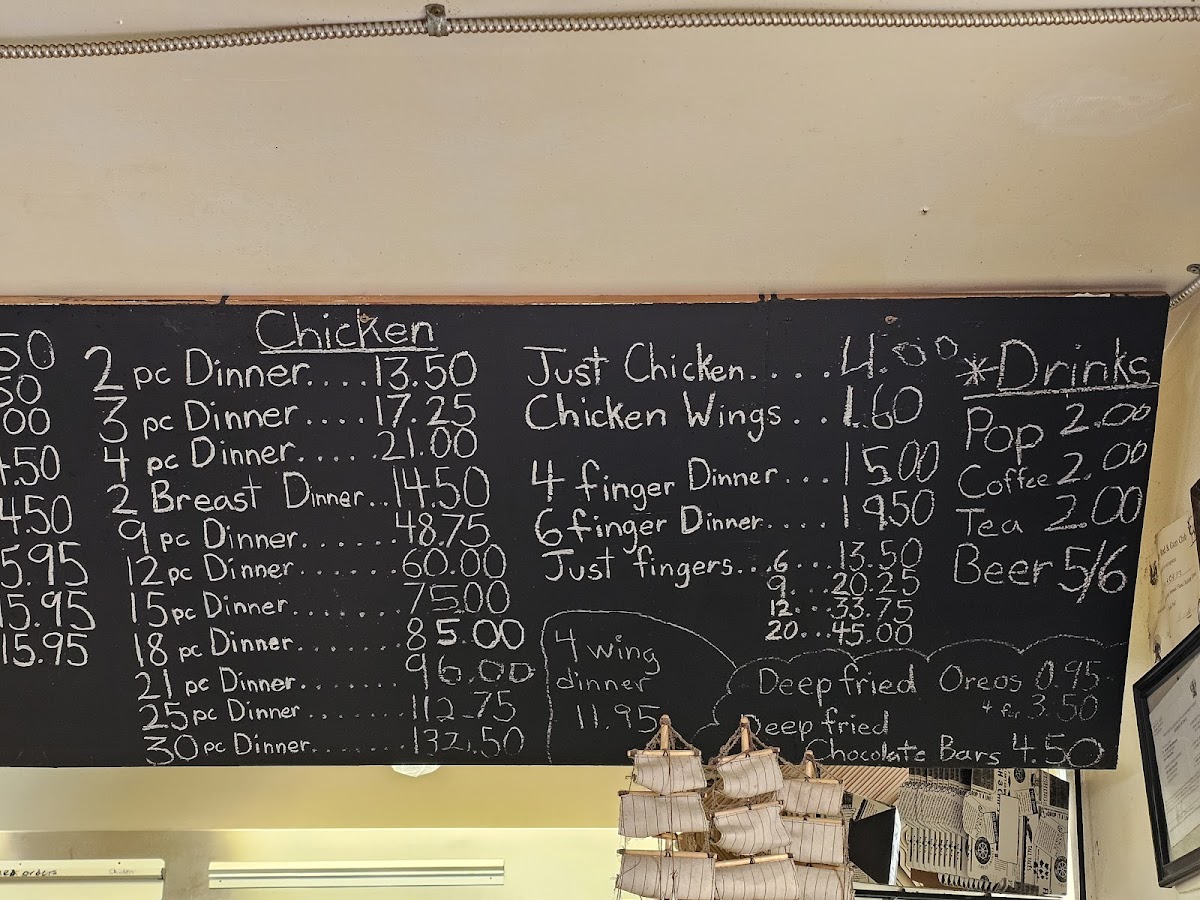 50
50
00
4.50
4.50
5.95
15.95
15.95
Chicken
2 pc Dinner....13.50
3 pc Dinner....17.25
4 pc Dinner....21.00
2 Breast Dinner..14.50
9 pc Dinner.......48.75
12 pc Dinner.......60.00
15 pc Dinner.......75.00
18 pc Dinner.......85.00
21 pc Dinner.......96.00
25 pc Dinner.......112.75
30 pc Dinner.......132.50
Just Chicken....4.00
Chicken Wings..1.60
4 finger Dinner...15.00
6 finger Dinner....19.50
Just fingers...6...13.50
9...20.25
12...33.75
20...45.00
4 wing
dinner
11.95
*Drinks
Pop 2.00
Coffee 2.00
Tea 2.00
Beer 5/6
Deep fried Oreos 0.95
4 for 3.50
Deep fried
Chocolate Bars 4.50